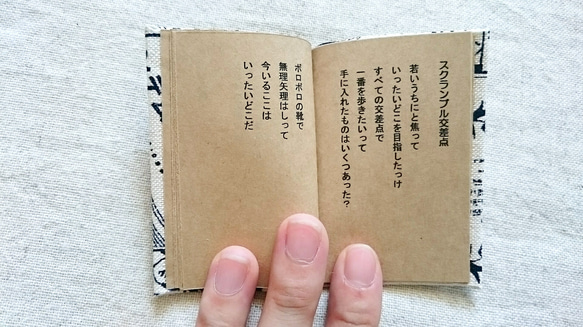 スクランブル交差点
若いうちにと焦って
いったいどこを目指したっけ
すべての交差点で
一番を歩きたいって
手に入れたものはいくつあった？
ボロボロの靴で
無理矢理はしって
今いるここは
いったいどこだ